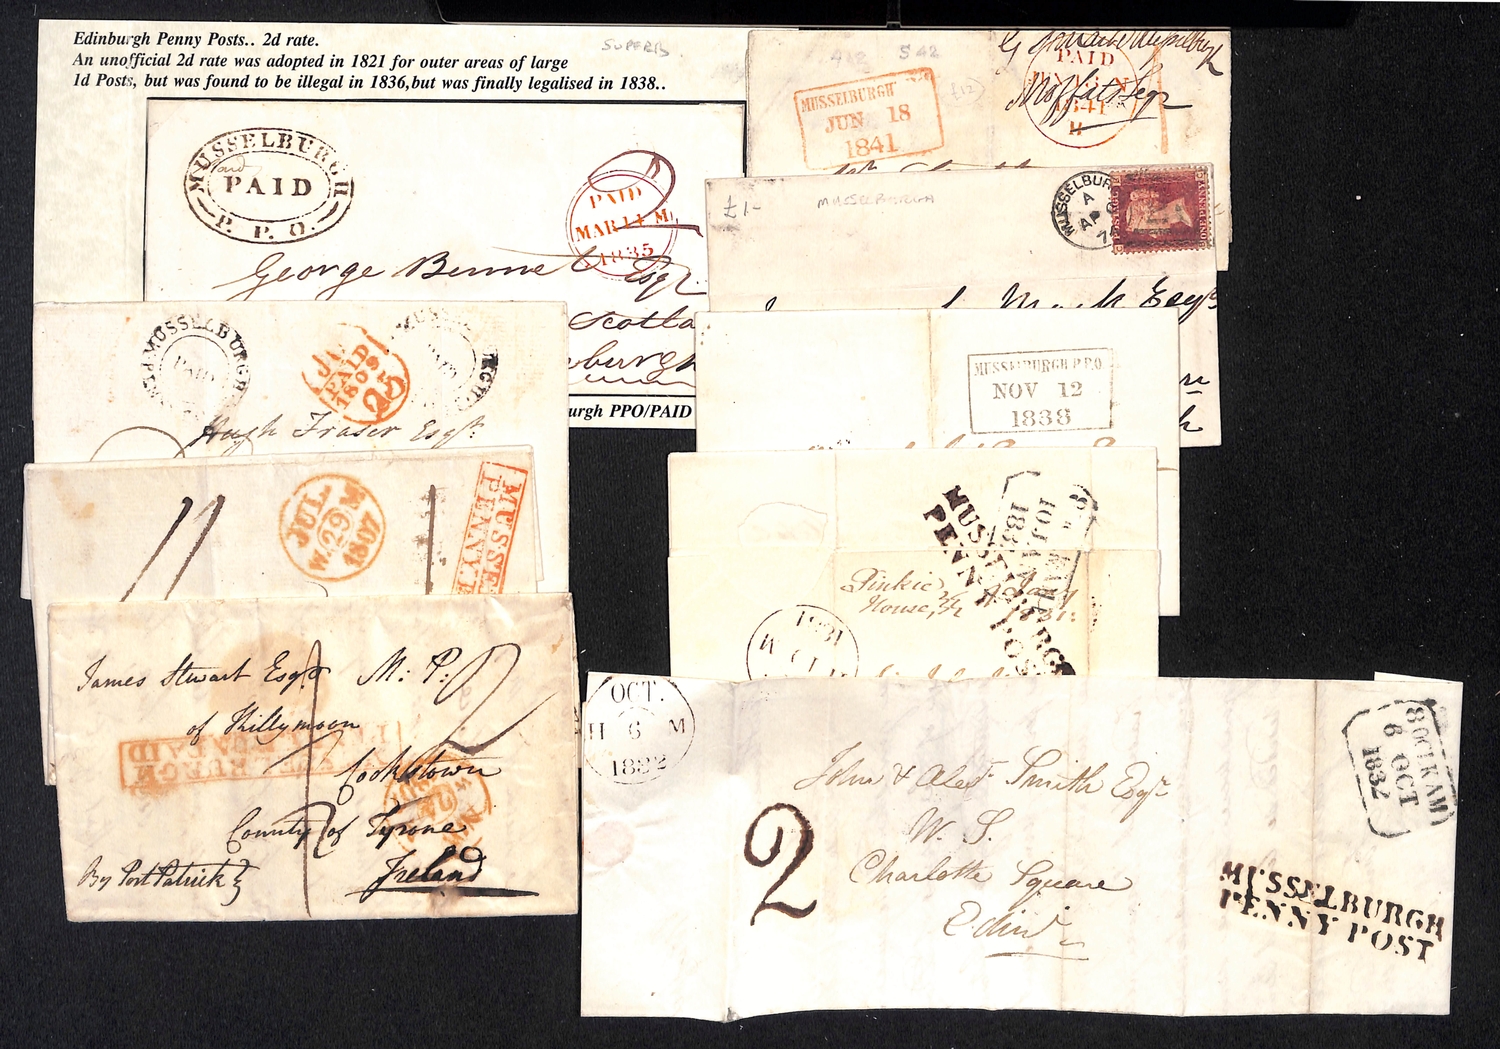 Edinburgh Penny Posts.. 2d rate.
An unofficial 2d rate was adopted in 1821 for outer areas of large
1d Posts, but was found to be illegal in 1836,but was finally legalised in 1838..
SUPERB
MUSSELBURGH
Paid
PAID
P. P. O.
PAID
MAR 14 M
1835
George Bennet Esqr.
Scotla
burgh
urgh PPO/PAID
412 542
£12
MUSSELBURGH
JUN 18
1841
PAID
1841
H
Moffat Esqr
£1-
MUSSELBURGH
MUSSELBUR
A
AP
7
POSTAGE
ONE PENNY
Esqre
MUSSELBURGH
PAID
PAID
1809
25
Hugh Fraser Esqr.
MUSSELBURGH P.P.O
NOV 12
1838
JUL
W. 29 M
1807
MUSSE
PENNY
MUSSELBURGH
PENNY POST
10 JA
183
Pinkie
House,
1831.
1831
James Stewart Esqr M: P:
of Killymoon
Cookstown
County of Tyrone
Ireland
By Port Patrick
2
MUSSELBURGH
UNPAID
OCT.
H 6 M
1832
John & Alexr Smith Esqr
W. S.
Charlotte Square
Edinr
2
8 OCLK AM
6 OCT
1832
MUSSELBURGH
PENNY POST